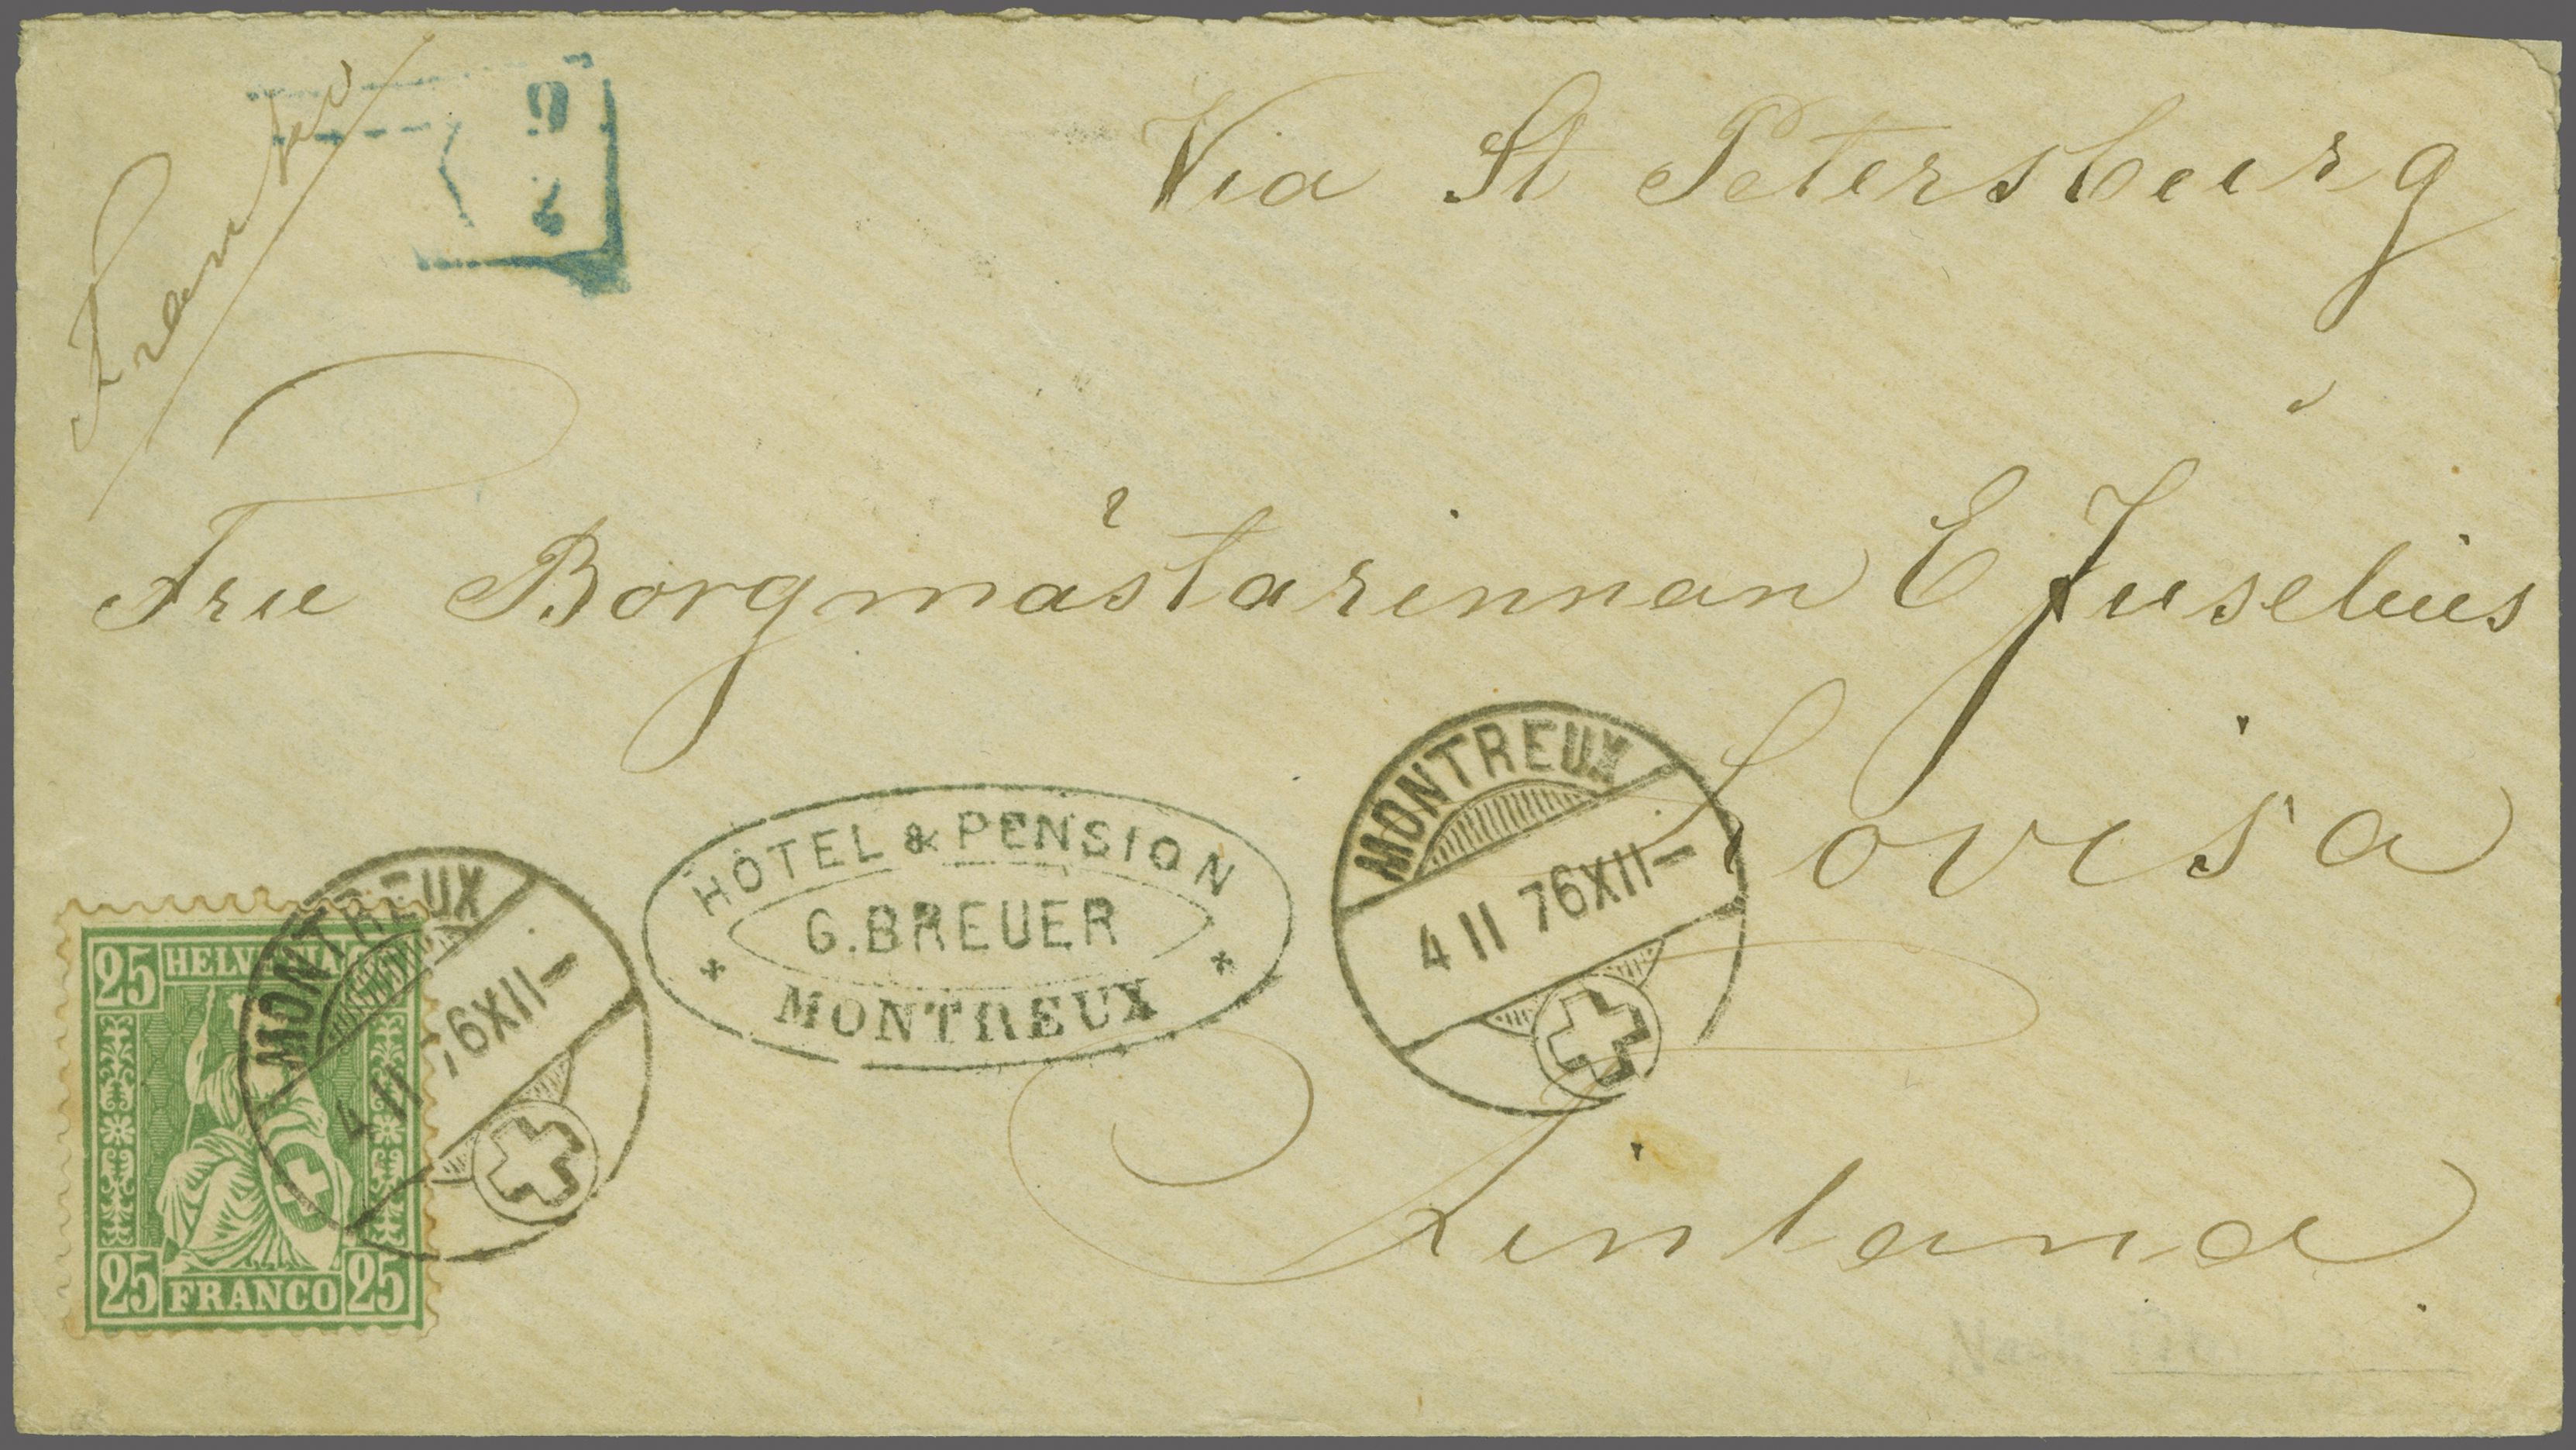 Franko
Via St Petersburg
Fru Borgmästarinnan E Juselius
Lovisa
Finland
HÔTEL & PENSION
G. BREUER
MONTREUX
MONTREUX
4 II 76 XII –
MONTREUX
4 II 76 XII –
25 HELVETIA
25 FRANCO 25